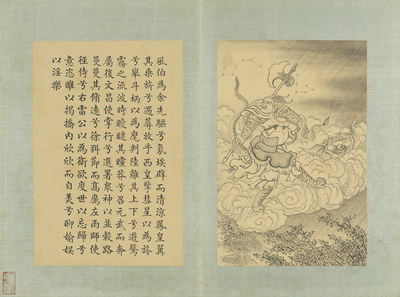 風伯為余先驅兮氛埃辟而清涼鳳皇翼
其承旂兮遇蓐收乎西皇擥彗星以為旍
兮舉斗柄以為麾叛陸離其上下兮遊驚
霧之流波時曖曃其曭莽兮召玄武而奔
屬後文昌使掌行兮選署衆神以並轂路
曼曼其脩遠兮徐弭節而高厲左雨師使
徑侍兮右雷公以為衛欲度世以忘歸兮
意恣睢以担撟內欣欣而自美兮聊媮娛
以淫樂